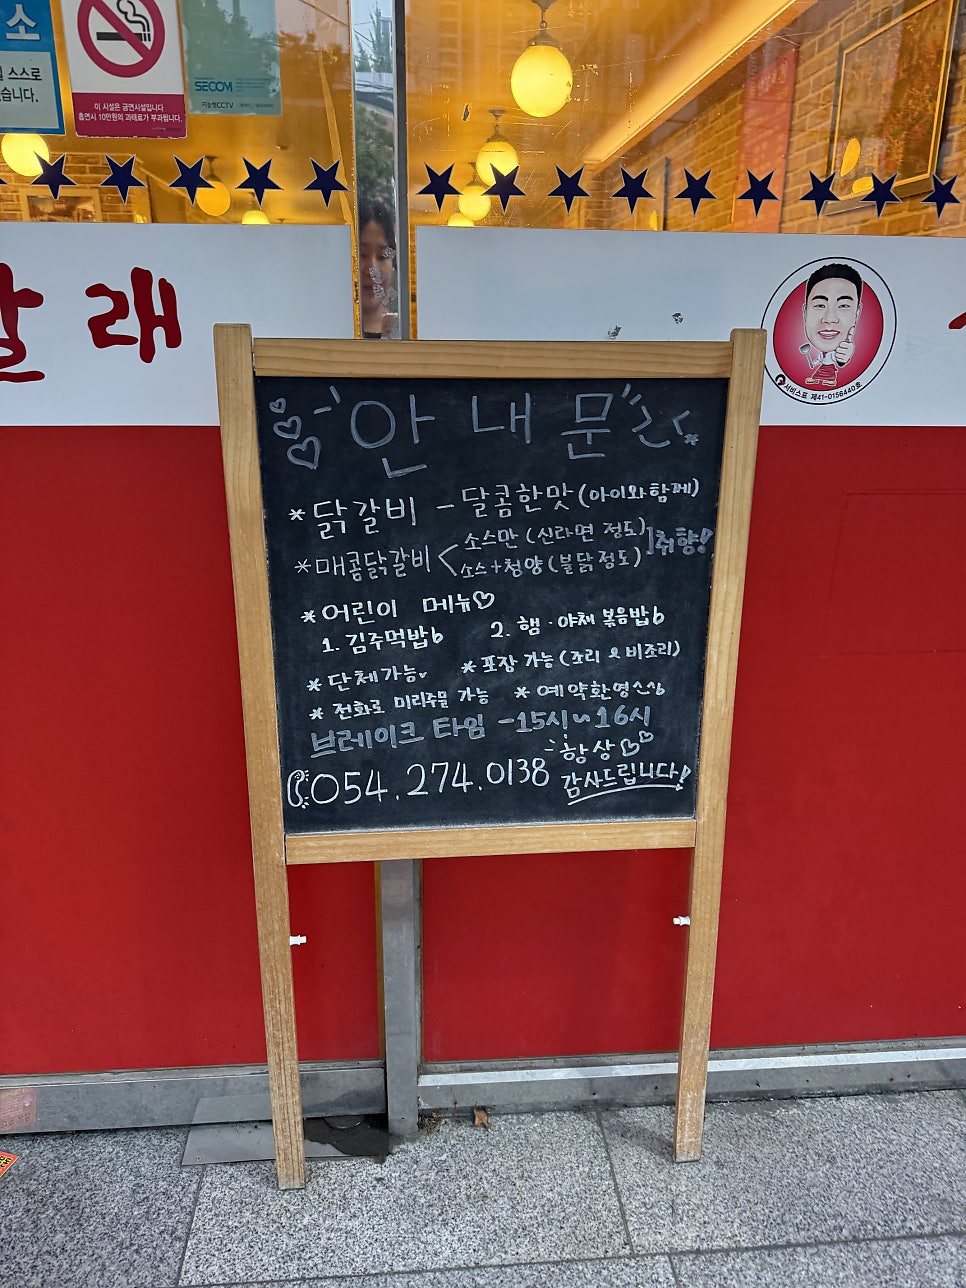 소
스스로
습니다.
이 시설은 금연시설입니다
흡연시 10만원의 과태료가 부과됩니다.
SECOM
지능형CCTV
래
서비스표 제41-0156440호
안내문
*닭갈비 - 달콤한맛(아이와함께)
*매콤닭갈비 < 소스만 (신라면 정도)
소스+청양(불닭정도) ]취향!
*어린이 메뉴♡
1. 김주먹밥
2. 햄·야채 볶음밥
*단체가능
*포장 가능(조리 & 비조리)
*전화로 미리주문 가능
*예약환영^^
브레이크 타임 -15시~16시
항상
054.274.0138 감사드립니다!